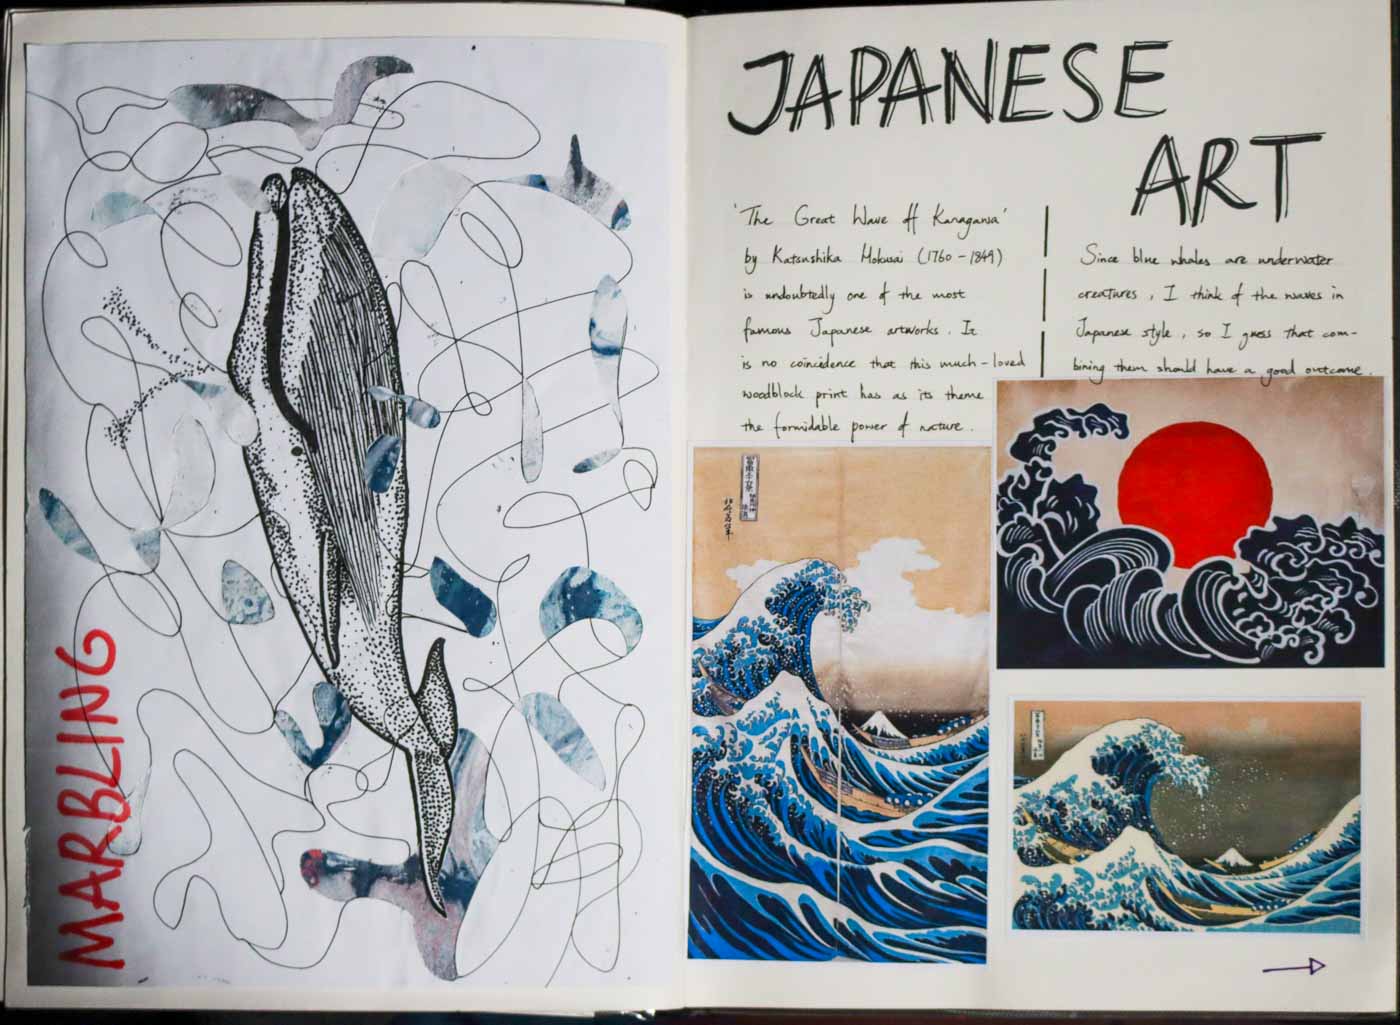 MARBLING
JAPANESE
ART
'The Great Wave off Kanagawa'
by Katsushika Hokusai (1760-1849)
is undoubtedly one of the most
famous Japanese artworks. It
is no coincidence that this much-loved
woodblock print has as its theme
the formidable power of nature.
Since blue whales are underwater
creatures, I think of the waves in
Japanese style, so I guess that com-
bining them should have a good outcome.